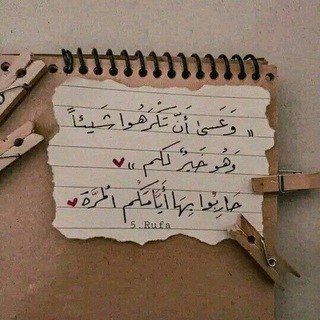 « وَعَسىٰ أَنّ تَكْرَهُوا شَيئاً
وَهُو خَيرٌ لَكم »
حارِبُوا بِهَا أَيَّامَكُم المُرَّة
5.Rufa